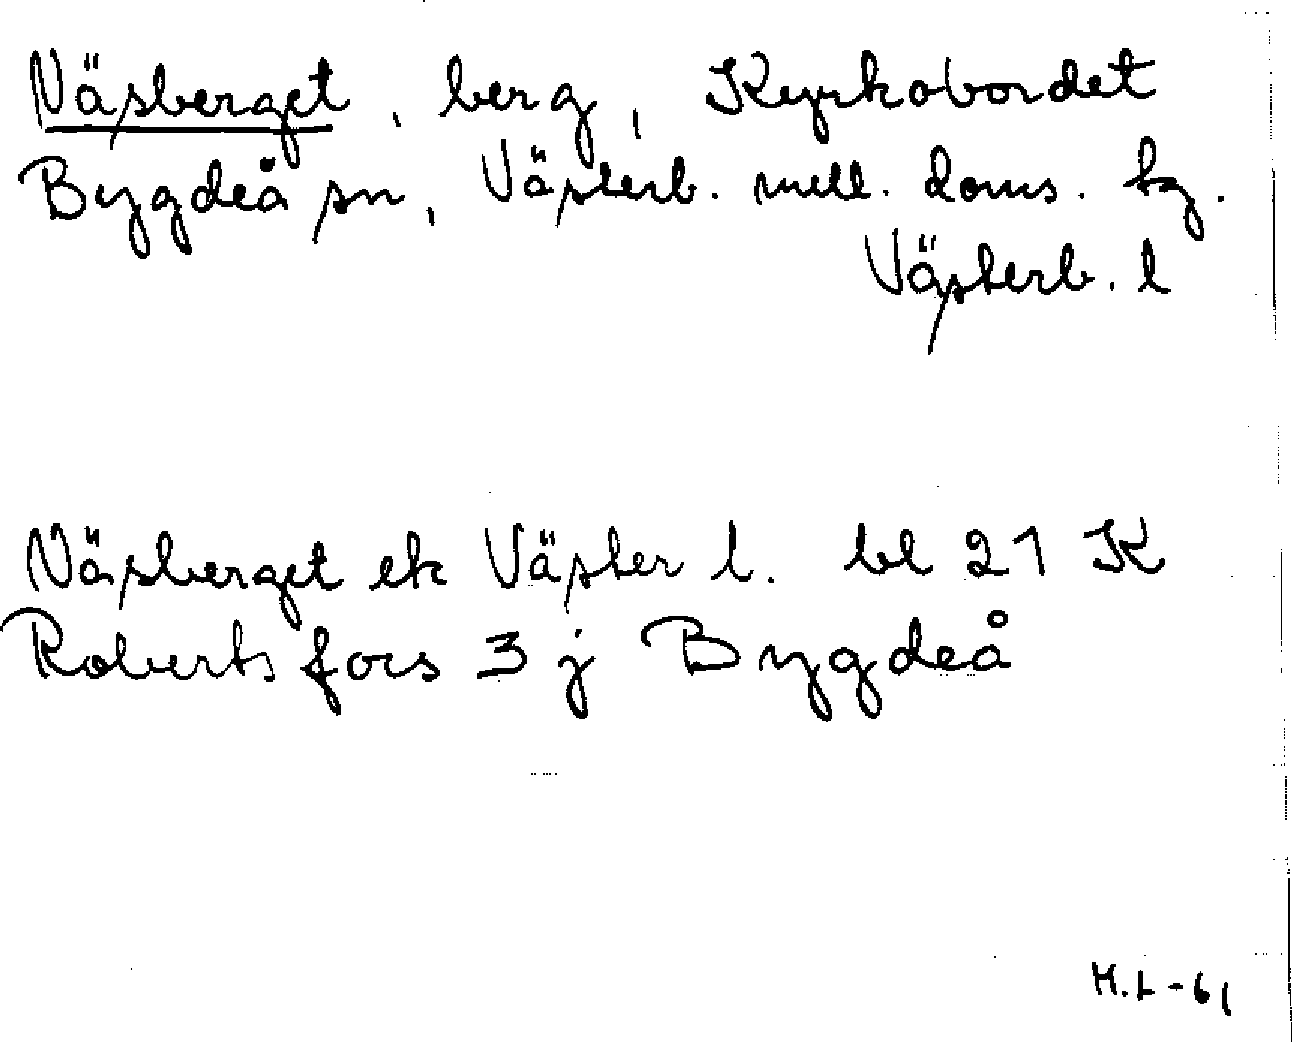 Näsberget, berg, Kyrkobordet
Bygdeå sn, Västerb. mell. doms. tg.
Västerb. l
Näsberget ek Väster l. bl 21 K
Robertsfors 3 j Bygdeå
H.L-61